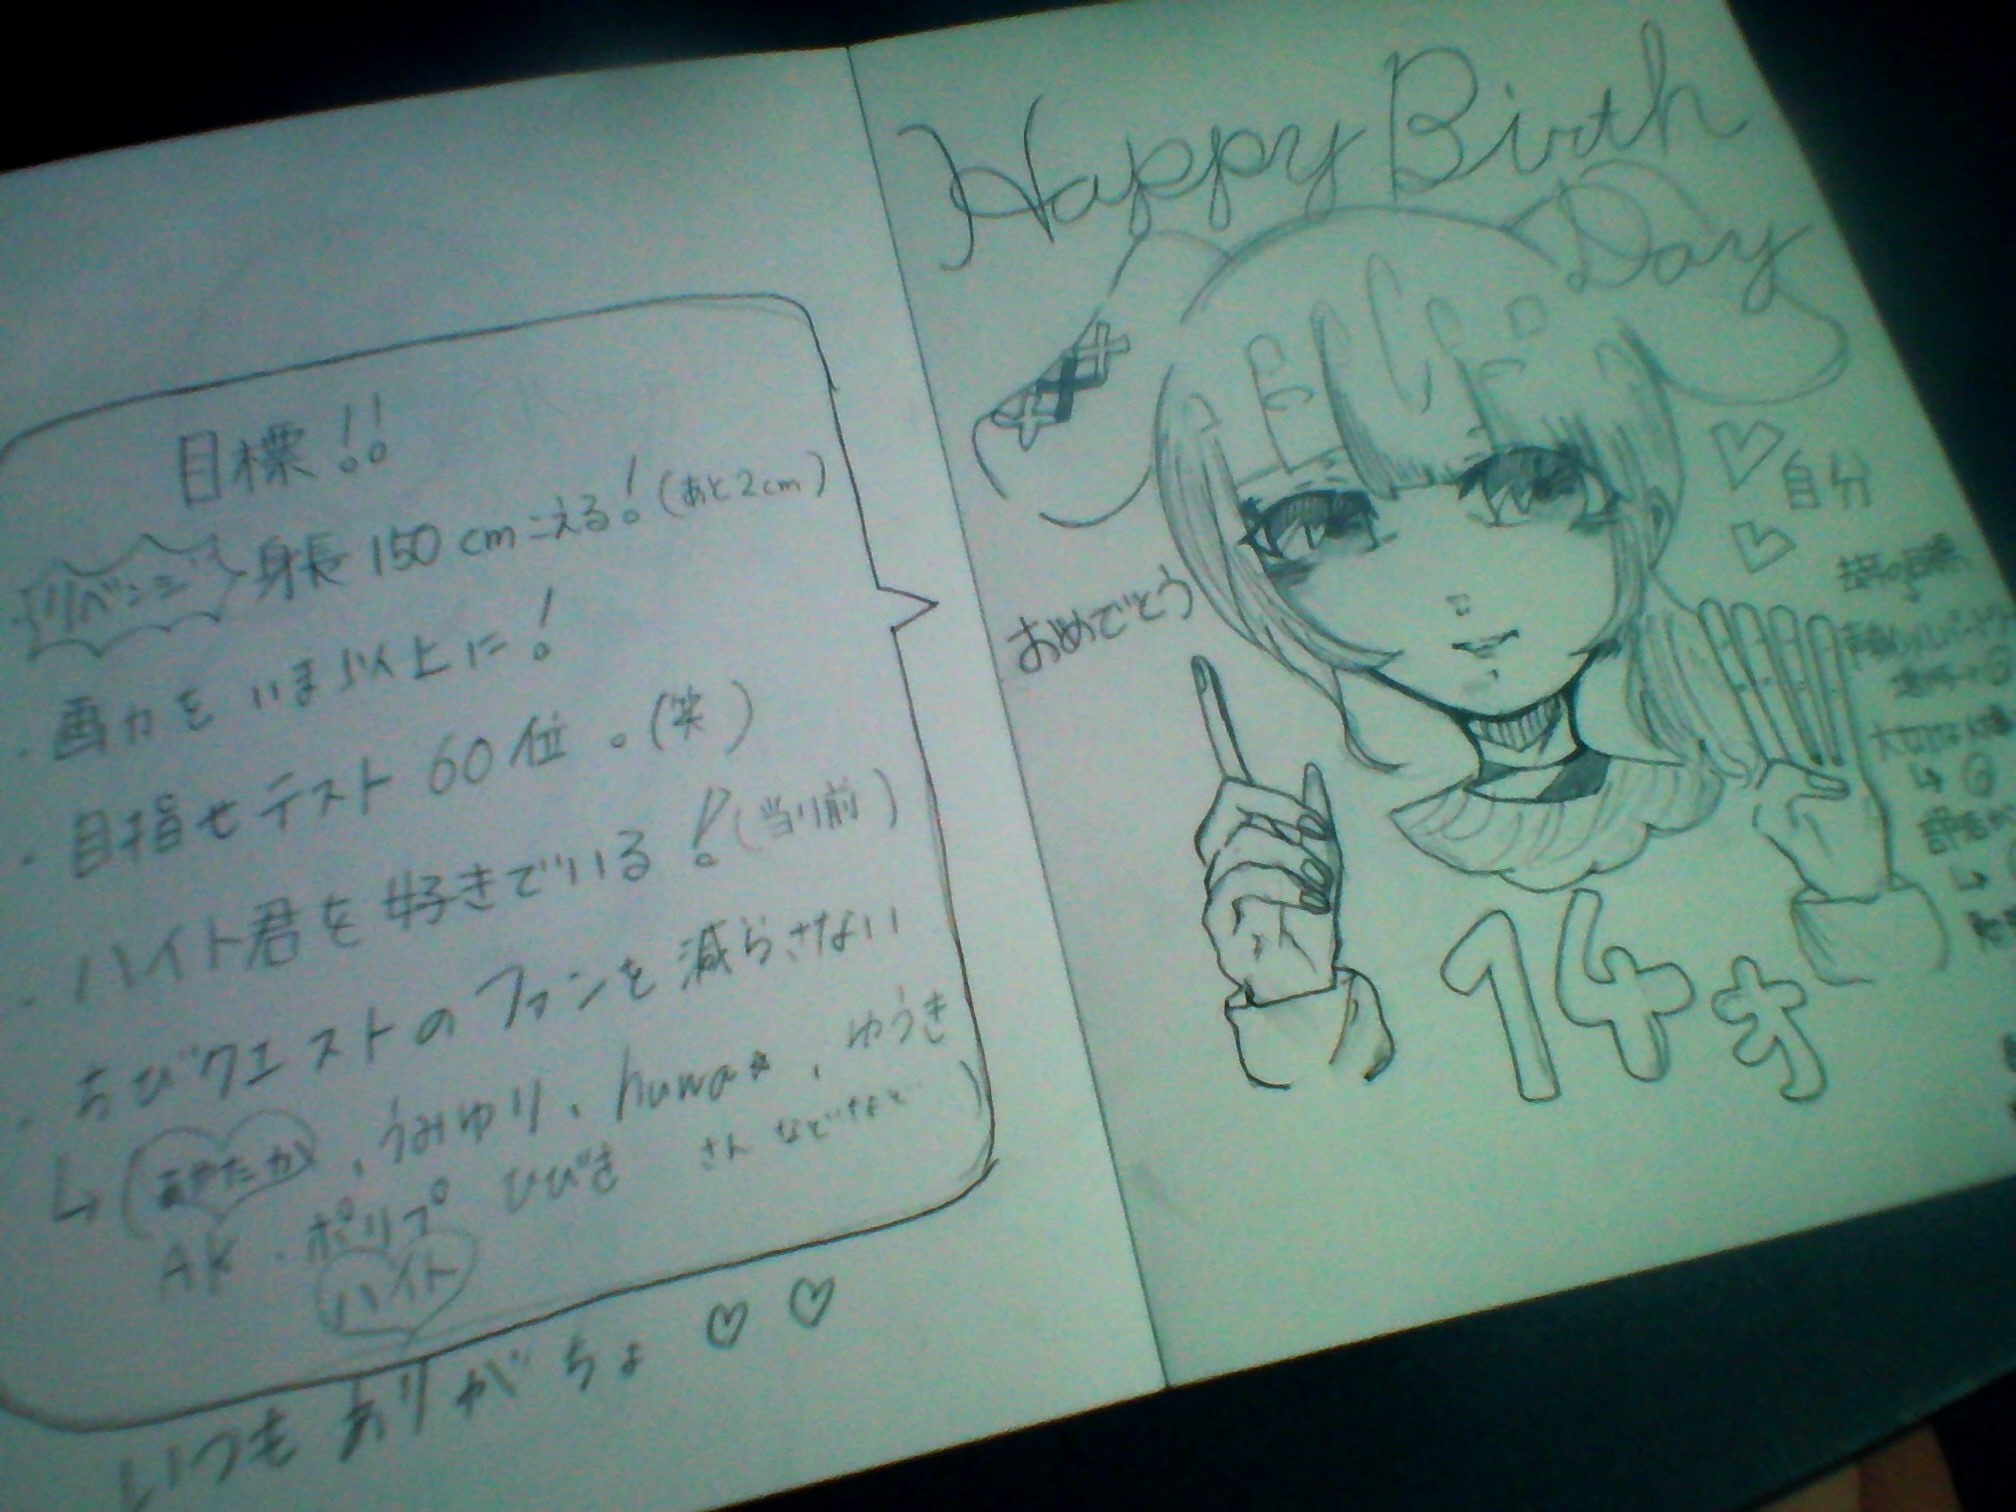 目標!!
リベンジ 身長150cmこえる!(あと2cm)
・画力をいま以上に!
・目指せテスト60位。(笑)
・ハイト君を好きでいる!(当り前)
・ちびクエストのファンを減らさない
↳(あやたか、うみゆり、huwa*、ゆうき
AK・ポリプ ひびき さん などなど)
ハイト
いつもありがちょ♡♡
Happy Birth
Day
♡自分
♡
おめでとう
14才